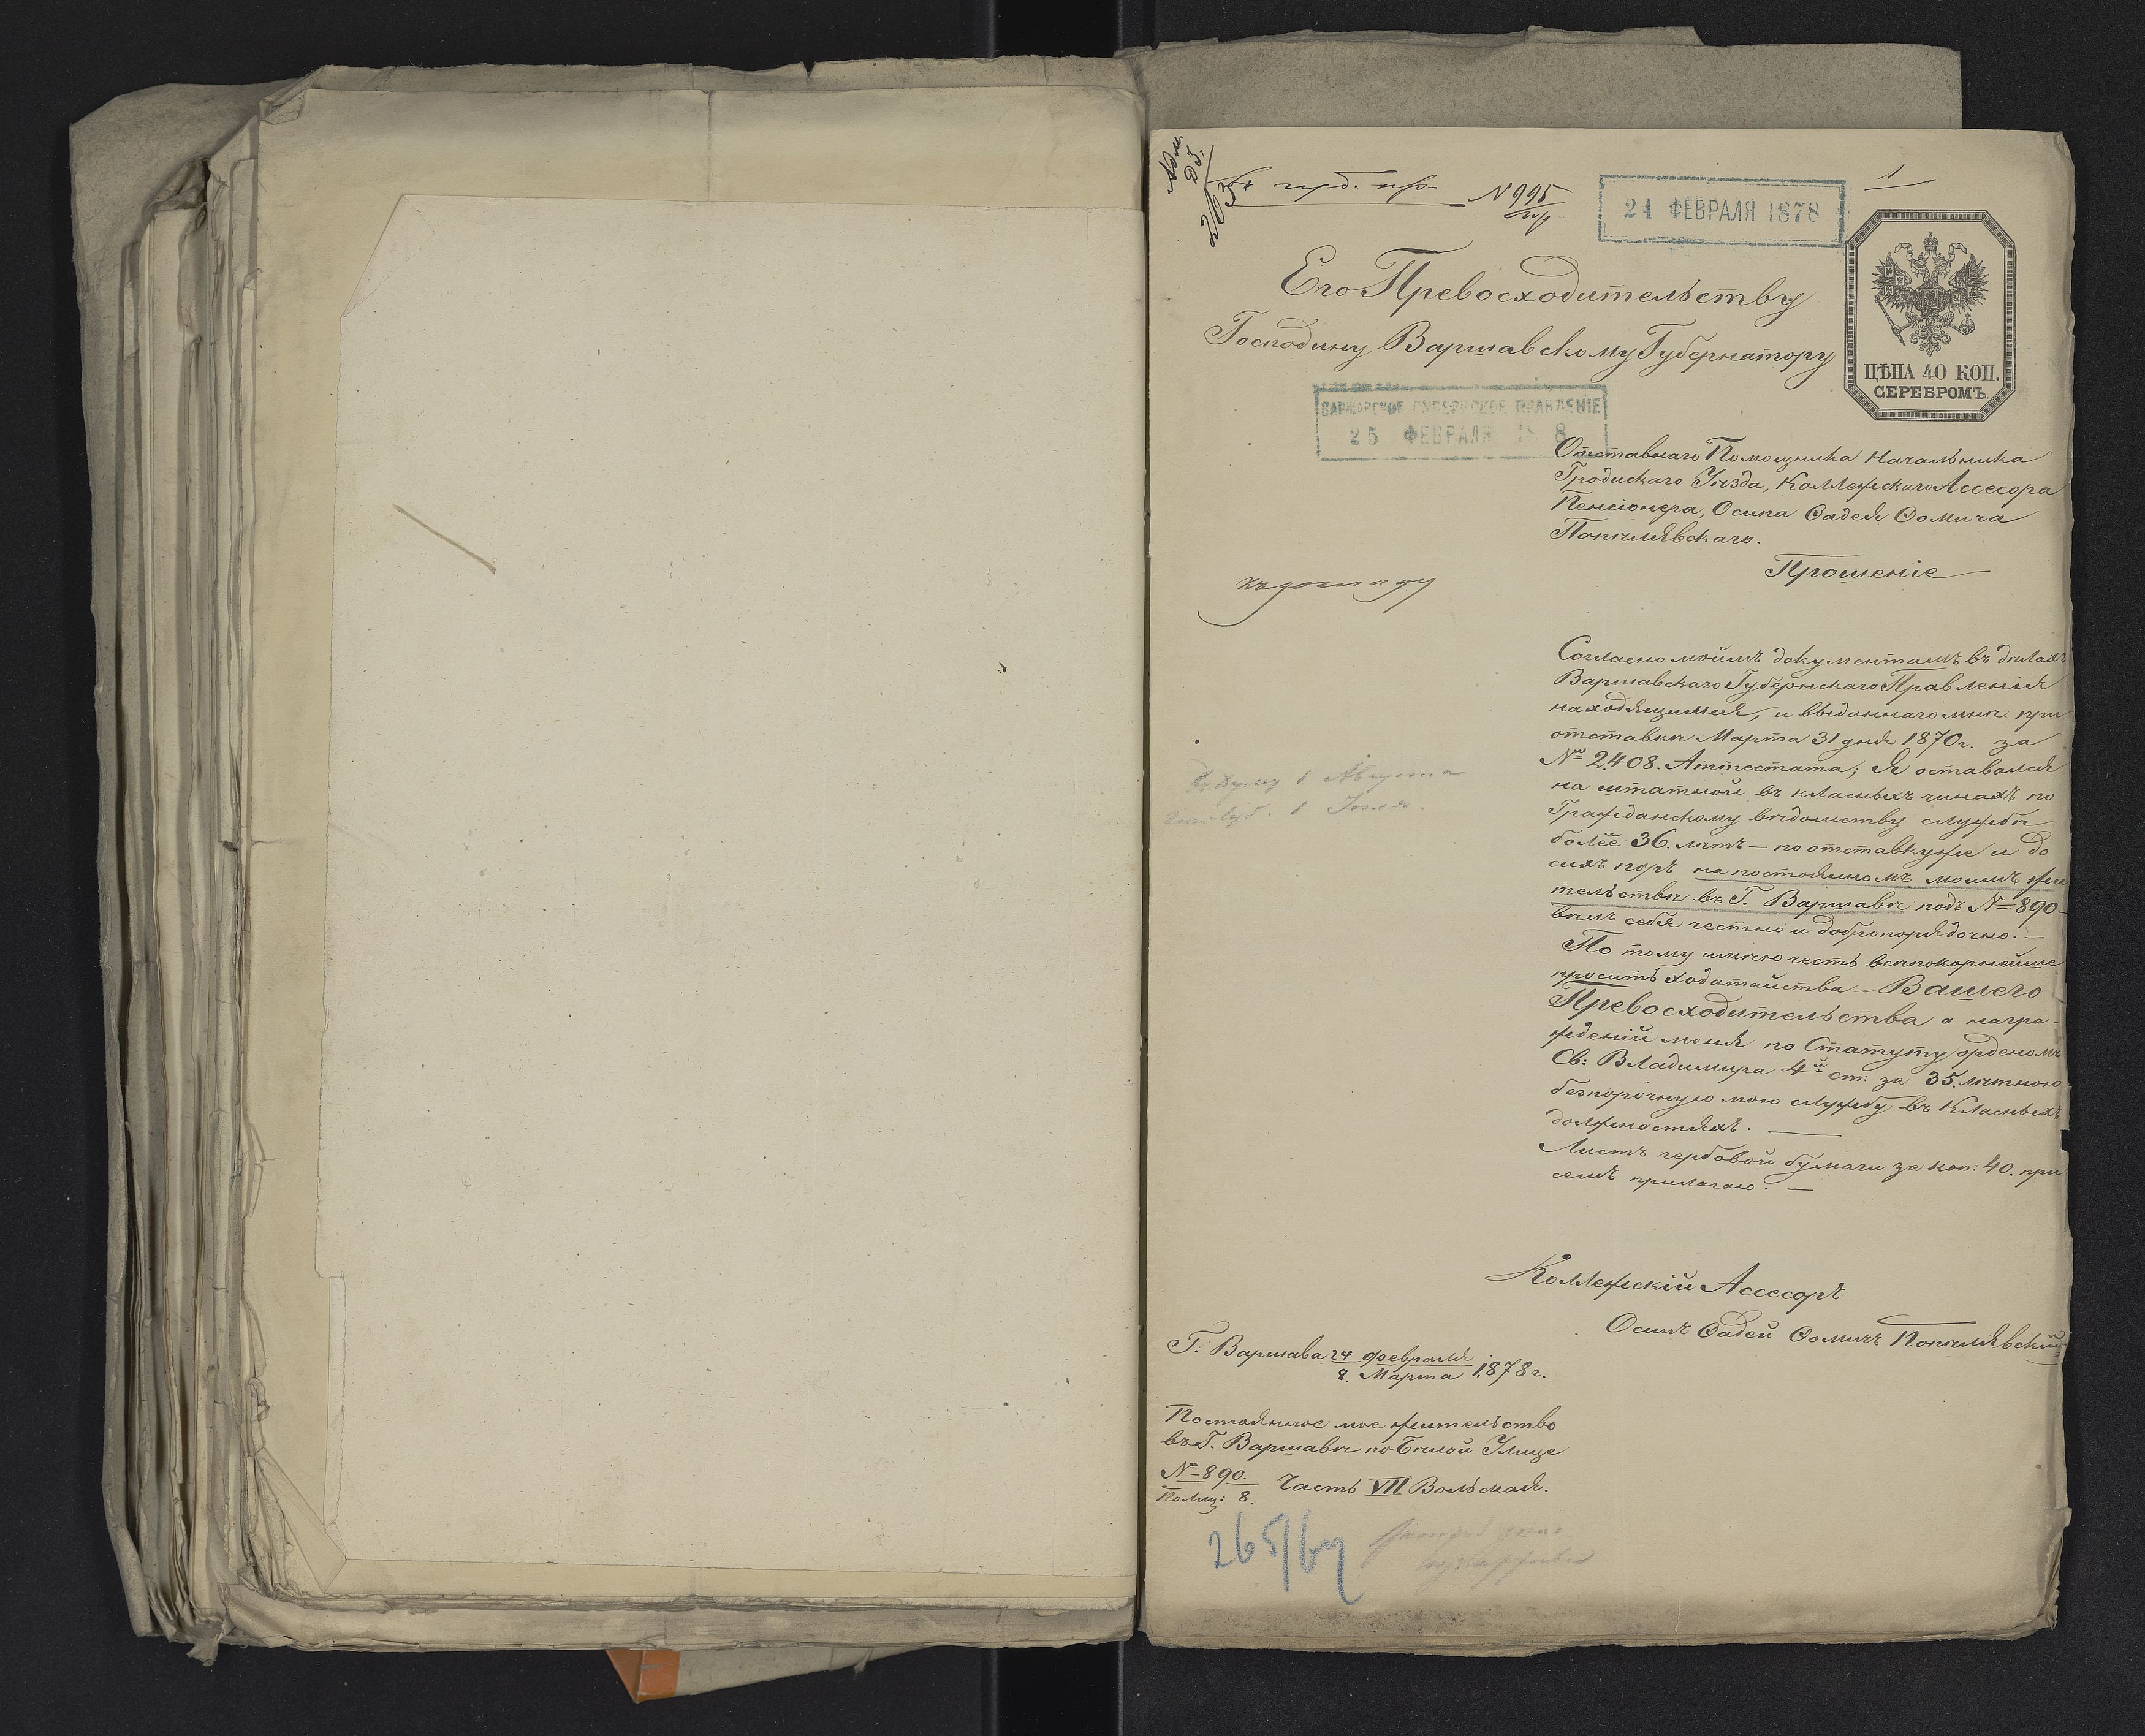 1
№ 995
24 ФЕВРАЛЯ 1878
Его Превосходительству
Господину Варшавскому Губернатору
ЦѢНА 40 КОП.
СЕРЕБРОМЪ.
ВАРШАВСКОЕ ГУБЕРНСКОЕ ПРАВЛЕНІЕ
25 ФЕВРАЛЯ 18 8
Отставнаго Помощника Начальника
Гродискаго Уѣзда, Коллежскаго Ассесора
Пенсіонера, Осипа Ѳадея Ѳомича
Попѣлявскаго.
Прошеніе
къ докладу
Согласно моймъ документамъ въ дѣлахъ
Варшавскаго Губернскаго Правленія
находящимся, и выданнаго мнѣ при
отставкѣ Марта 31 дня 1870 г. за
№ 2408. Аттестата; Я оставался
на штатной въ класныхъ чинахъ по
Гражданскому вѣдомству службѣ
болѣе 36. лѣтъ — по отставкѣ же и до
сихъ поръ на постоянномъ моимъ жи
тельствѣ въ Г. Варшавѣ подъ № 890 –
вѣлъ себя честно и добропорядочно. —
По тому имѣю честь всепокорнейше
просить ходатайства Вашего
Превосходительства о награ-
жденій меня по Статуту орденомъ
Св: Владимира 4й ст: за 35. лѣтнюю
безпорочную мою службу въ Класныхъ
должностяхъ. —
Листъ гербовой бумаги за коп: 40. при
семъ прилагаю. —
Коллежскій Ассесоръ
Осипъ Ѳадей Ѳомичъ Попѣлявскій
Г: Варшава 24 февраля
8. Марта 1878 г.
Постоянное мое жительство
въ Г. Варшавѣ по Бѣлой Улице
№ 890. Часть VII Вольская.
Помѣщ: 8.
265/